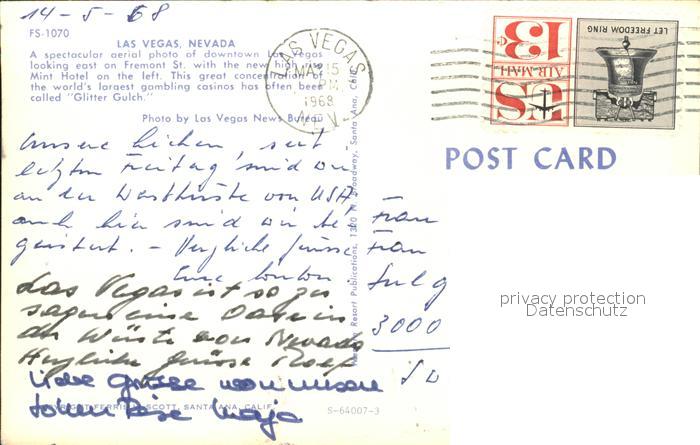 14-5-68
FS-1070
LAS VEGAS, NEVADA
A spectacular aerial photo of downtown Las Vegas
looking east on Fremont St. with the new high
Mint Hotel on the left. This great concentration of
the world's largest gambling casinos has often been
called "Glitter Gulch."
Photo by Las Vegas News Bureau
LAS VEGAS
MAY 15
PM
1968
NEV
13
AIR MAIL
US
LET FREEDOM RING
POST CARD
Unsere Lieben, seit
letzten Freitag sind wir
an der Westküste von USA,
auch hier sind wir be-
geistert. - Herzliche Grüsse
Eure
Las Vegas ist so zu
sagen eine Oase in
der Wüste von Nevada
Herzliche Grüsse
Liebe Grüsse von unserer
tollen Reise
Frau
Frau
3000
Resort Publications, 1320 N. Broadway, Santa Ana, Calif.
FERRIS H. SCOTT, SANTA ANA, CALIF.
S-64007-3
privacy protection
Datenschutz